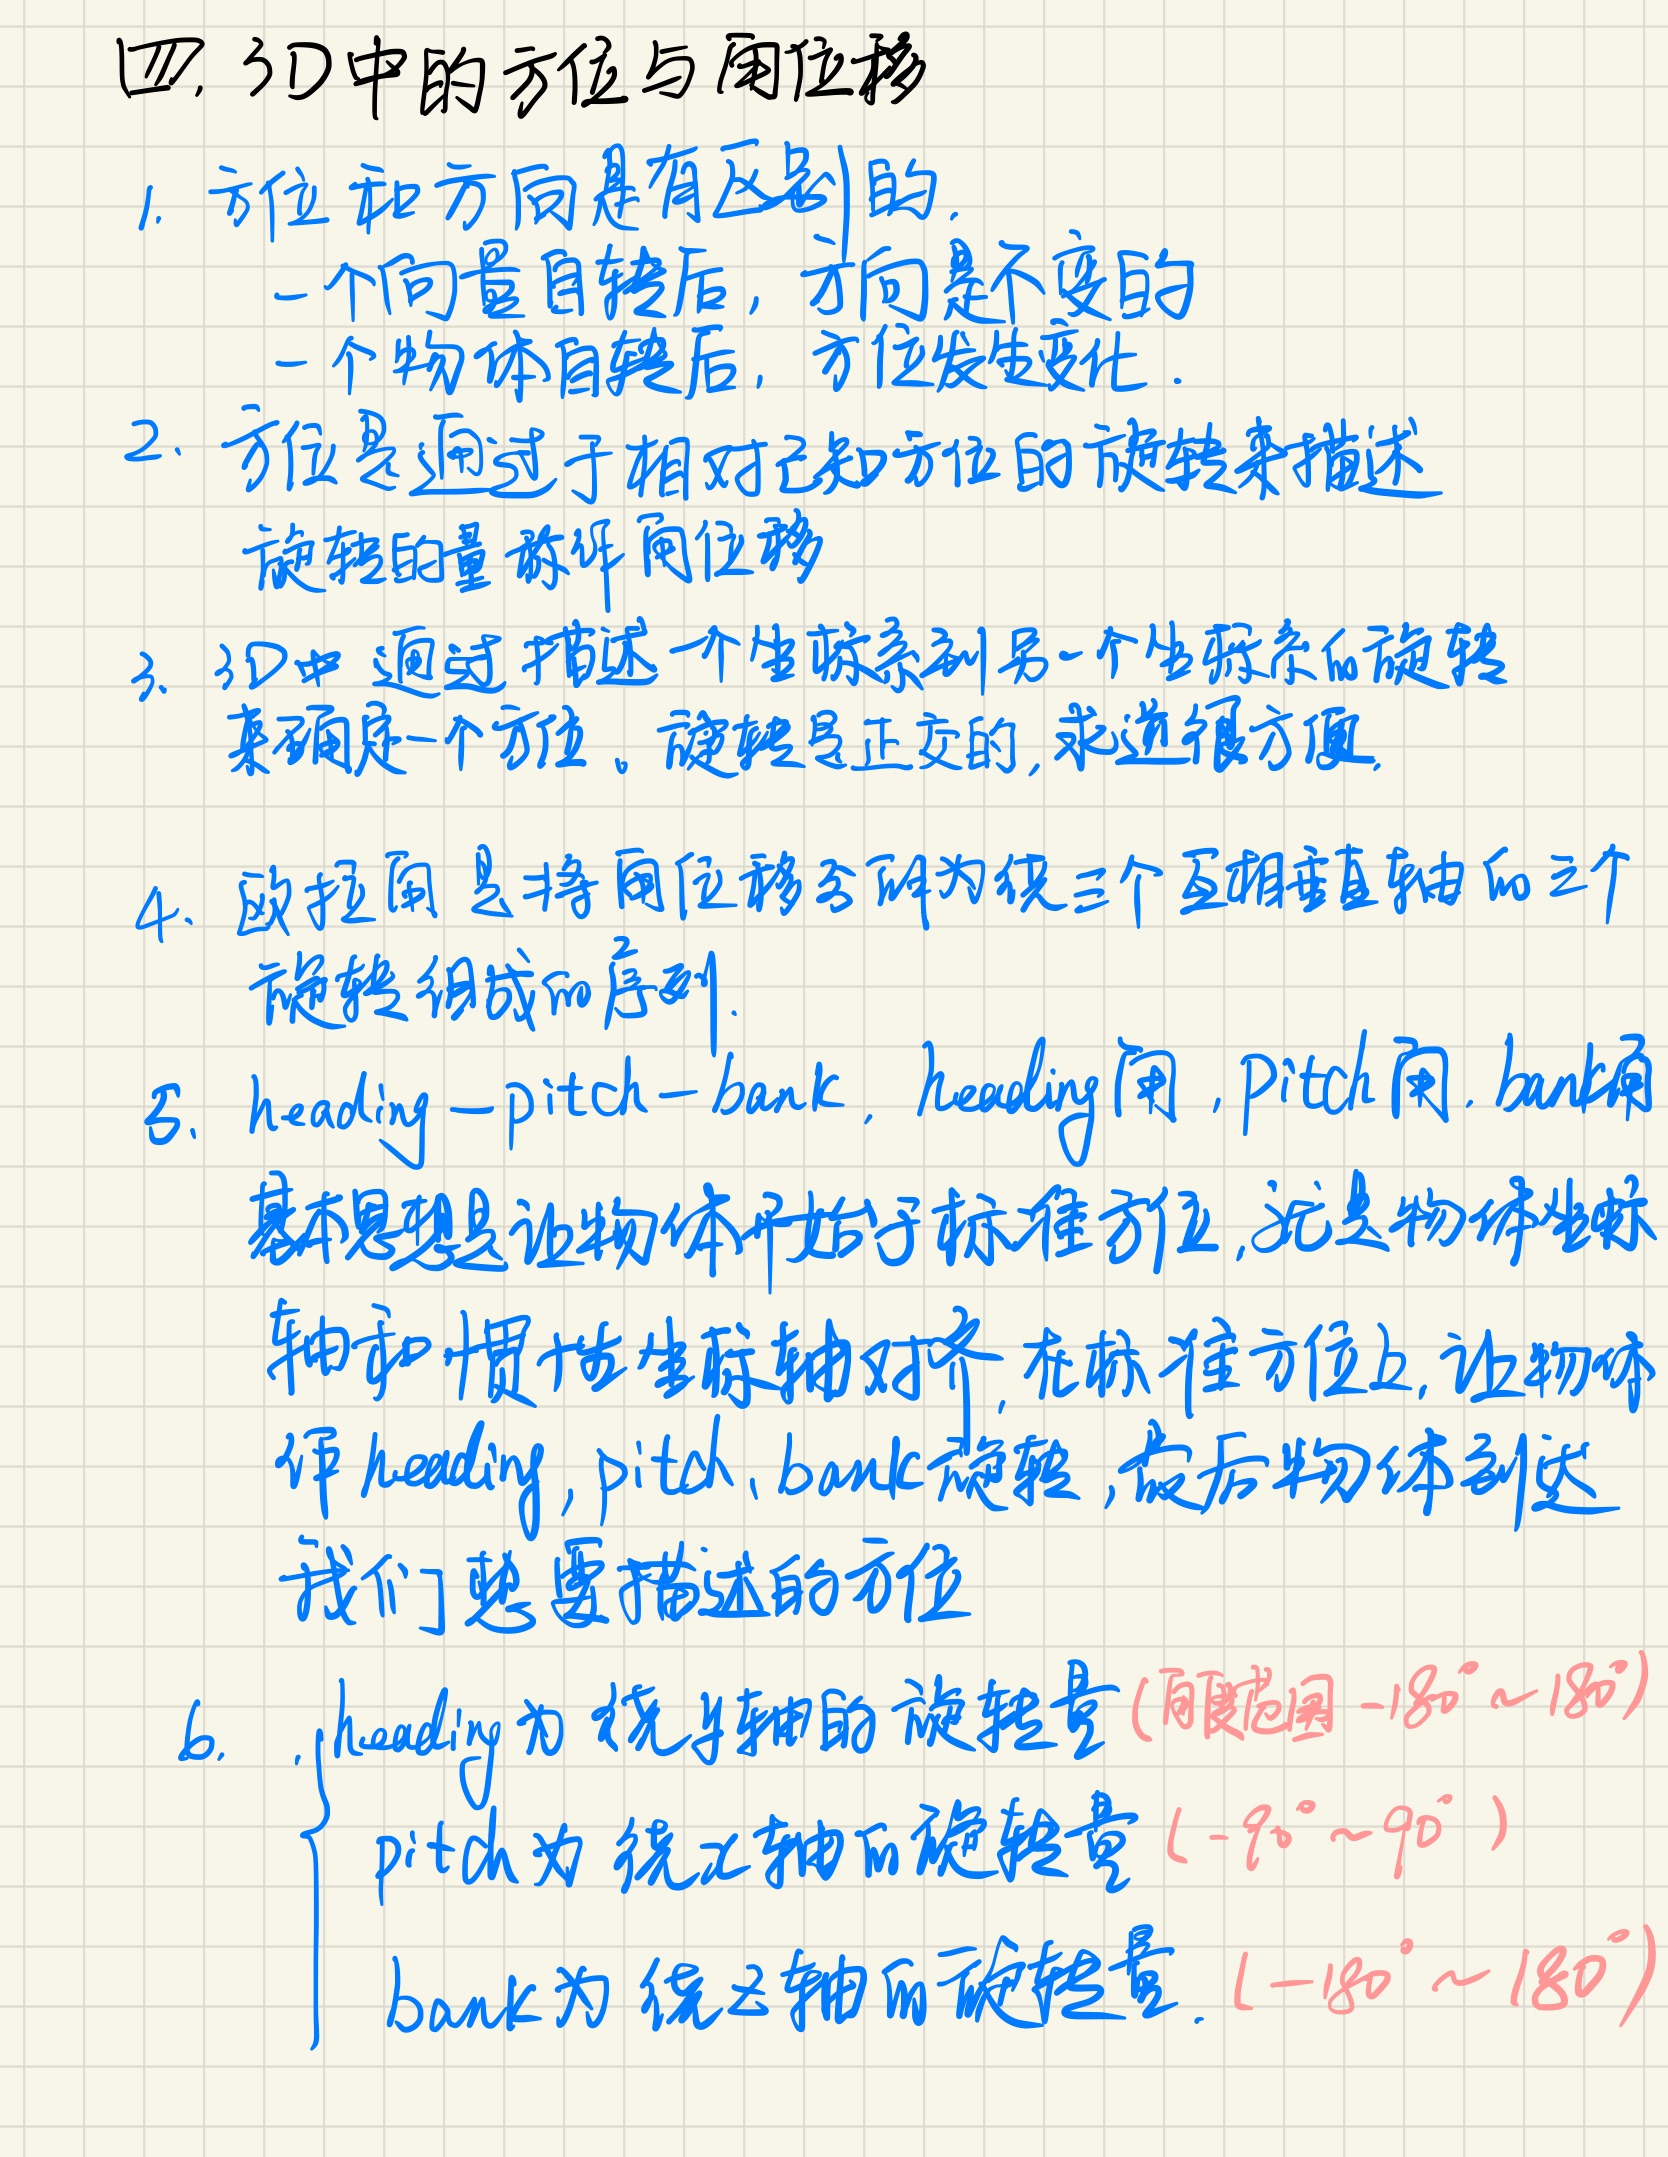 四. 3D中的方位与角位移
1. 方位和方向是有区别的.
一个向量自转后, 方向是不变的
一个物体自转后, 方位发生变化.
2. 方位是通过于相对已知方位的旋转来描述
旋转的量称作角位移
3. 3D中 通过描述一个坐标系到另一个坐标系的旋转
来确定一个方位。旋转是正交的, 求逆很方便.
4. 欧拉角是将角位移分解为绕三个互相垂直轴的三个
旋转组成的序列.
5. heading-pitch-bank. heading角, pitch角. bank角
基本思想是让物体开始于标准方位, 就是物体坐标
轴和惯性坐标轴对齐, 在标准方位上, 让物体
作heading, pitch, bank旋转, 最后物体到达
我们想要描述的方位
6. heading为绕y轴的旋转量 (角度范围 -180°~180°)
pitch为绕x轴的旋转量 (-90°~90°)
bank为绕z轴的旋转量. (-180°~180°)